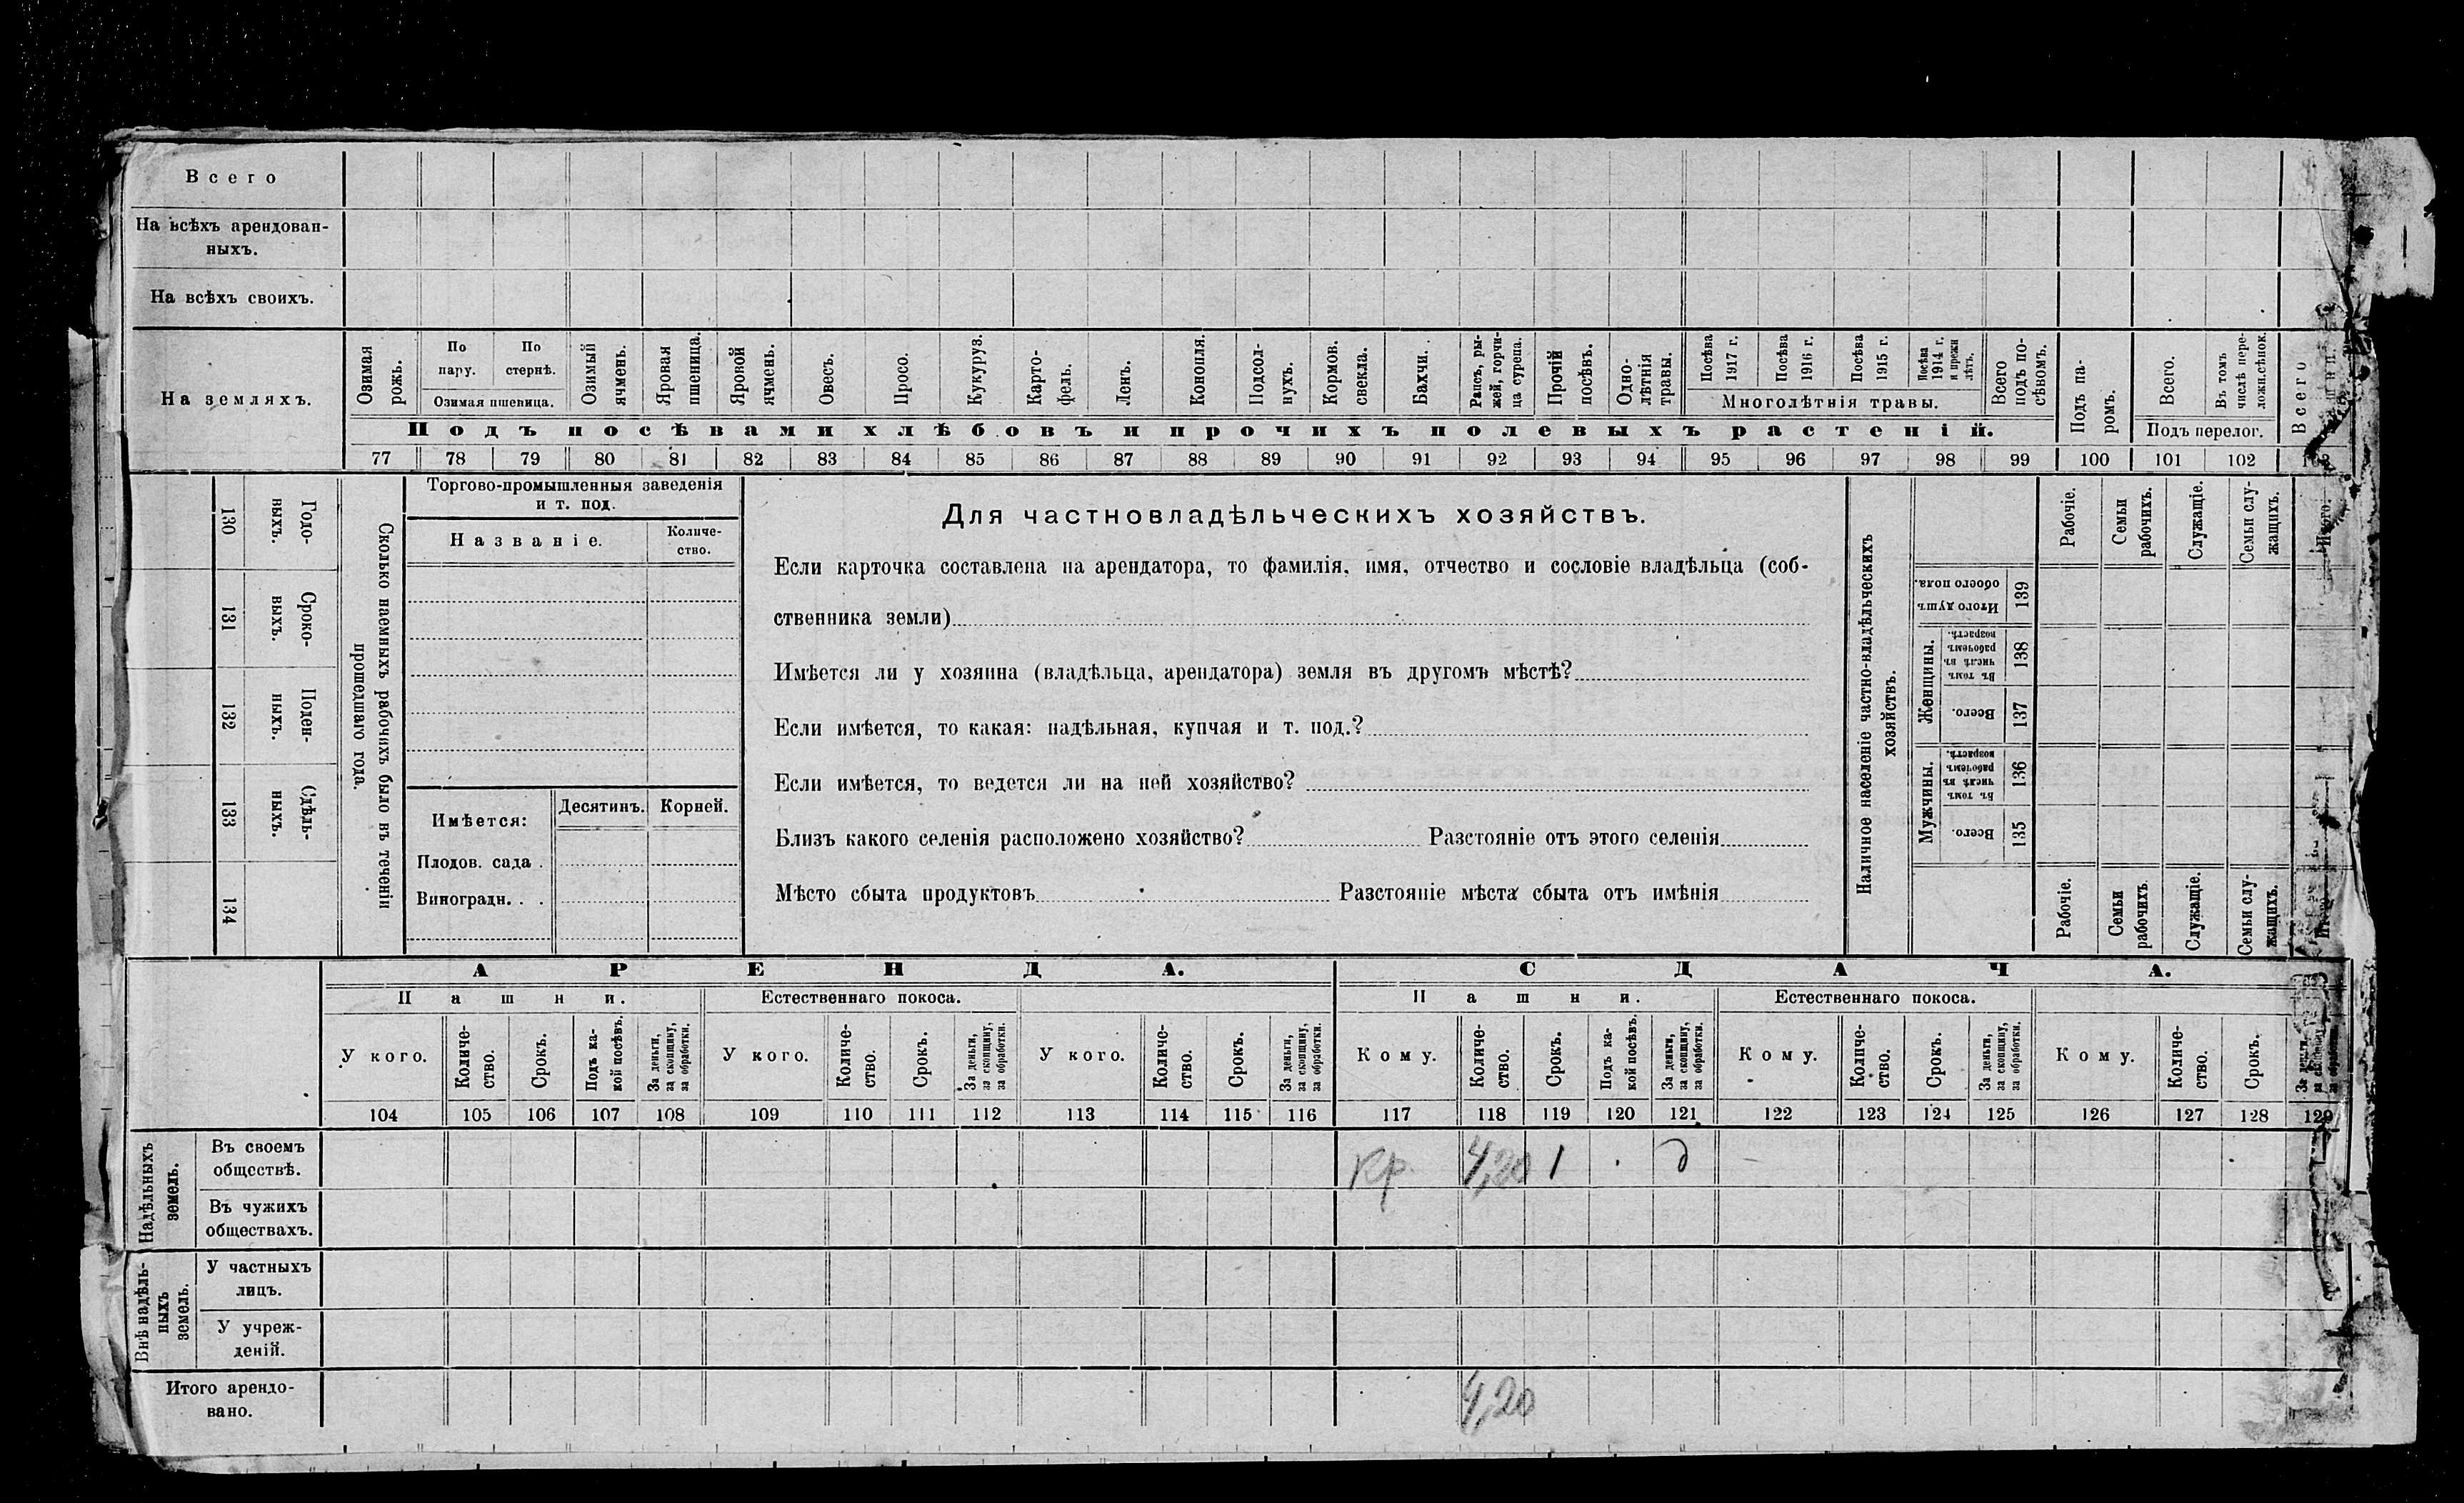 Всего
На всѣхъ арендован-
ныхъ.
На всѣхъ своихъ.
На земляхъ.
Озимая рожь.
По пару.
По стернѣ.
Озимая пшеница.
Озимый ячмень.
Яровая пшеница.
Яровой ячмень.
Овесъ.
Просо.
Кукуруз.
Карто-
фель.
Ленъ.
Конопля.
Подсол-
нухъ.
Кормов. свекла.
Бахчи.
Рапсъ, ры-
жей, горчи-
ца сурепа.
Прочій посѣвъ.
Одно-
лѣтнія травы.
Посѣва 1917 г.
Посѣва 1916 г.
Посѣва 1915 г.
Посѣва 1914 г. и прежн лѣтъ.
Многолѣтнія травы.
Всего подъ по-
сѣвомъ.
Подъ па-
ромъ.
Всего.
Въ томъ числѣ пере-
ложн.сѣнок.
Подъ перелог.
Всего
Подъ посѣвами хлѣбовъ и прочихъ полевыхъ растеній.
77 78 79 80 81 82 83 84 85 86 87 88 89 90 91 92 93 94 95 96 97 98 99 100 101 102 103
130 Годо-
ныхъ.
131 Сроко-
выхъ.
132 Поден-
ныхъ.
133 Сдѣль-
ныхъ.
134
Сколько наемныхъ рабочихъ было въ теченіи
прошедшаго года.
Торгово-промышленныя заведенія
и т. под.
Названіе.
Количе-
ство.
Имѣется:
Десятинъ.
Корней.
Плодов. сада .
Виноградн. . .
Для частновладѣльческихъ хозяйствъ.
Если карточка составлена на арендатора, то фамилія, имя, отчество и сословіе владѣльца (соб-
ственника земли)
Имѣется ли у хозяина (владѣльца, арендатора) земля въ другомъ мѣстѣ?
Если имѣется, то какая: надѣльная, купчая и т. под.?
Если имѣется, то ведется ли на ней хозяйство?
Близъ какого селенія расположено хозяйство? Разстояніе отъ этого селенія
Мѣсто сбыта продуктовъ Разстояніе мѣста сбыта отъ имѣнія
Наличное населеніе частно-владѣльческихъ
хозяйствъ.
Итого душъ обоего пола.
139
Женщины.
Въ томъ числѣ въ рабочемъ возрастѣ.
138
Всего.
137
Мужчины.
Въ томъ числѣ въ рабочемъ возрастѣ.
136
Всего.
135
Рабочіе.
Семьи рабочихъ.
Служащіе.
Семьи слу-
жащихъ.
Итого.
Рабочіе.
Семьи рабочихъ
Служащіе.
Семьи слу-
жащихъ.
АРЕНДА.
СДАЧА.
Пашни.
Естественнаго покоса.
Пашни.
Естественнаго покоса.
У кого.
Количе-
ство.
Срокъ.
Подъ ка-
кой посѣвъ.
За деньги, за скопщину, за обработки.
У кого.
Количе-
ство.
Срокъ.
За деньги, за скопщину, за обработки.
У кого.
Количе-
ство.
Срокъ.
За деньги, за скопщину, за обработки.
Кому.
Количе-
ство.
Срокъ.
Подъ ка-
кой посѣвъ.
За деньги, за скопщину, за обработки.
Кому.
Количе-
ство.
Срокъ.
За деньги, за скопщину, за обработки.
Кому.
Количе-
ство.
Срокъ.
104 105 106 107 108 109 110 111 112 113 114 115 116 117 118 119 120 121 122 123 124 125 126 127 128 129
Надѣльныхъ
земель.
Въ своемъ
обществѣ.
кр. 4,20 1 д
Въ чужихъ
обществахъ.
Внѣ надѣль-
ныхъ
земель.
У частныхъ
лицъ.
У учреж-
деній.
Итого арендо-
вано.
4,20